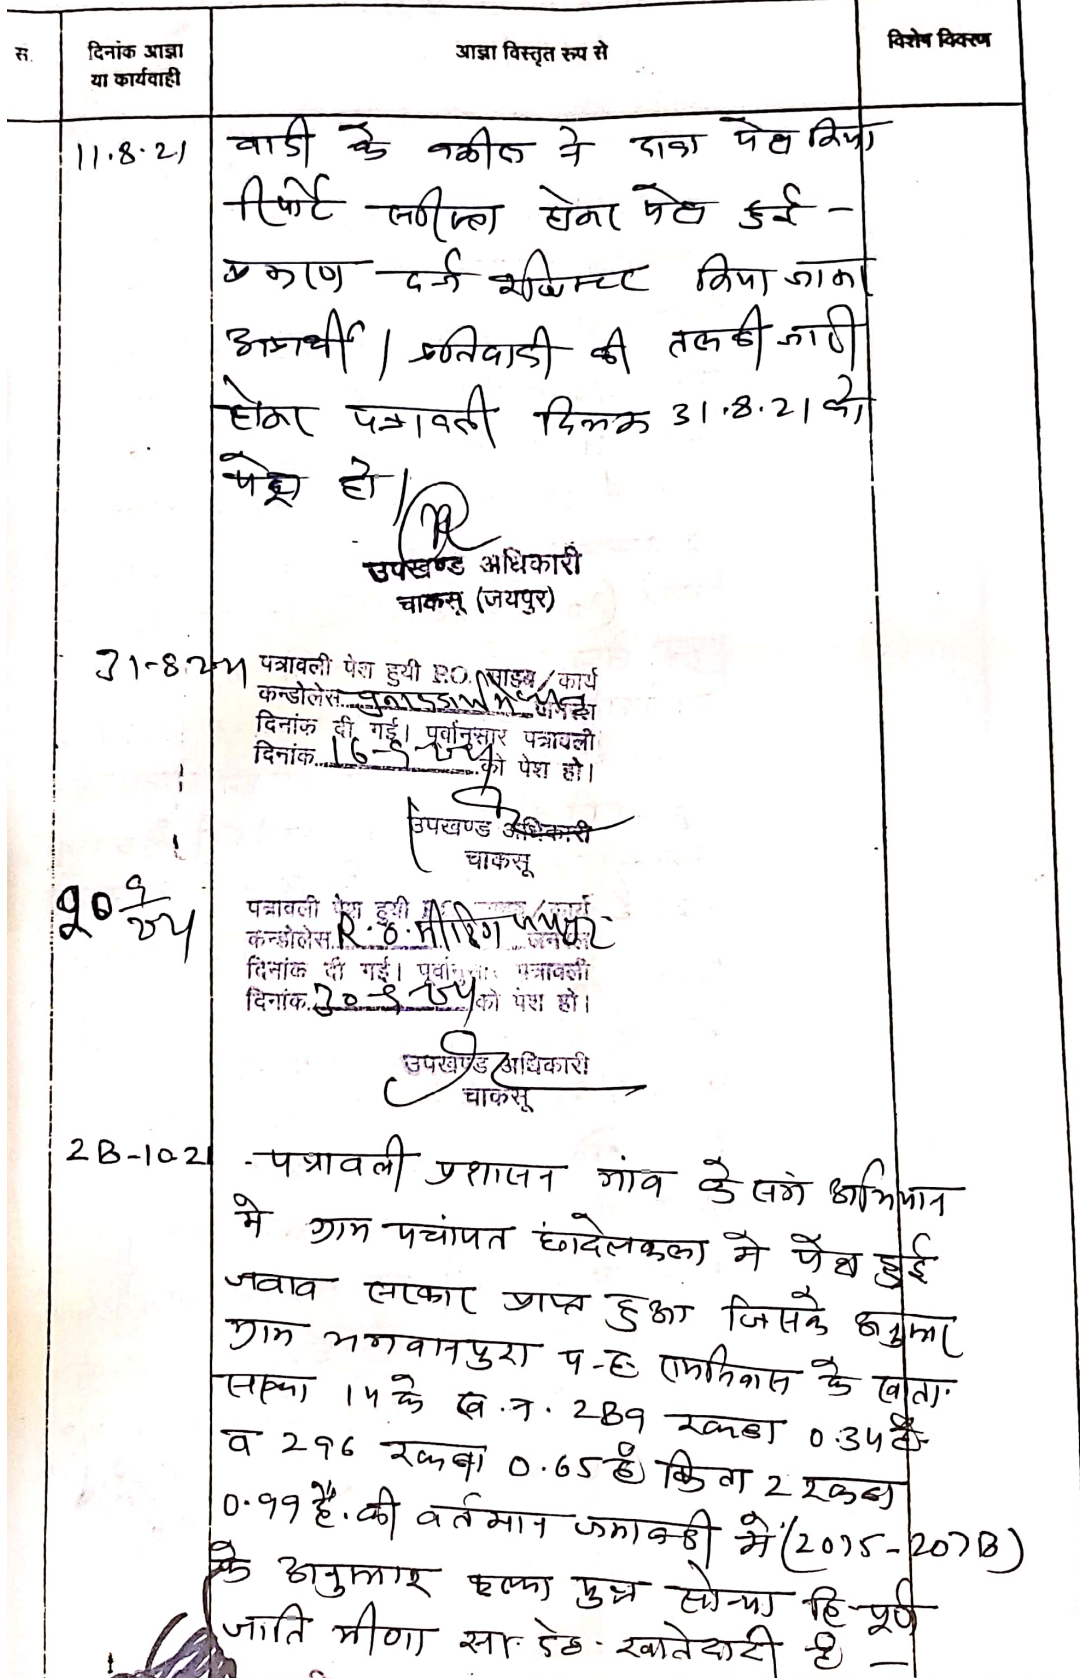 स.
दिनांक आज्ञा
या कार्यवाही
आज्ञा विस्तृत रूप से
विशेष विवरण
11.8.21
वादी के वकील ने दावा पेश किया
रिपोर्ट होकर पेश हुई -
प्रकरण दर्ज रजिस्टर किया जाकर
अप्रार्थी / प्रतिवादी की तलबी जारी
होकर पत्रावली दिनांक 31.8.21 को
पेश हो।
उपखण्ड अधिकारी
चाकसू (जयपुर)
31-8-21
पत्रावली पेश हुयी P.O. साहब/कार्य
कन्डोलेस
दिनांक दी गई। पूर्वानुसार पत्रावली
दिनांक 16-9-21 को पेश हो।
उपखण्ड अधिकारी
चाकसू
पत्रावली पेश हुयी कार्य
कन्डोलेस R.O. मीटिंग जयपुर
दिनांक दी गई। पूर्वानुसार पत्रावली
दिनांक 30-9-21 को पेश हो।
उपखण्ड अधिकारी
चाकसू
28-10-21
पत्रावली प्रशासन गांव के संग अभियान
मे ग्राम पचांयत छांदेलकला मे पेश हुई
जवाव सरकार प्राप्त हुआ जिसके अनुसार
ग्राम भगवानपुरा प.ह. रामनिवास के खाता
सख्या 14 के ख.न. 289 रकबा 0.34 है
व 296 रकबा 0.65 है किता 2 रकबा
0.99 है. की वर्तमान जमाबन्दी में (2075-2078)
के अनुसार पुत्र हि-पूर्ण
जाति मीणा सा. देह. खातेदारी है -